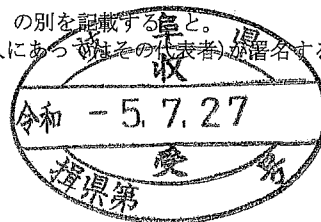 の別を記載すること。
人にあってはその代表者)が署名する
阜県
収
令和 -5.7.27
受
揖県第 号